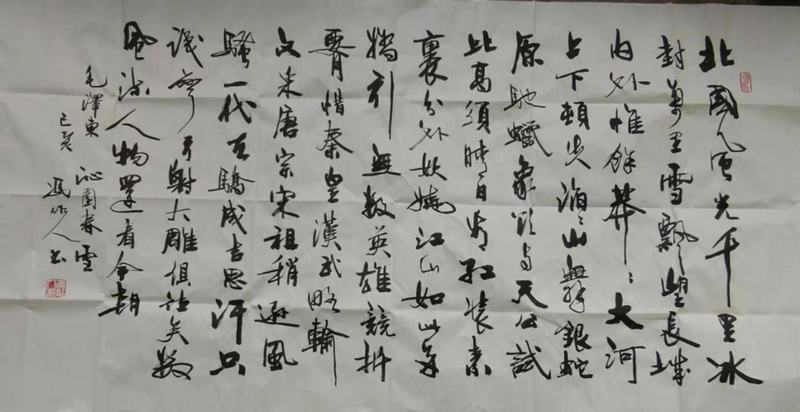 北國風光千里冰
封萬里雪飄望長城
内外惟餘莽〻大河
上下頓失滔〻山舞銀蛇
原馳蠟象欲与天公試
比高須晴日看紅裝素
裹分外妖嬈江山如此多
嬌引無數英雄競折
腰惜秦皇漢武略輸
文采唐宗宋祖稍遜風
騷一代天驕成吉思汗只
識彎弓射大雕俱往矣數
風流人物還看今朝
毛澤東 沁園春雪
己亥 馮人书